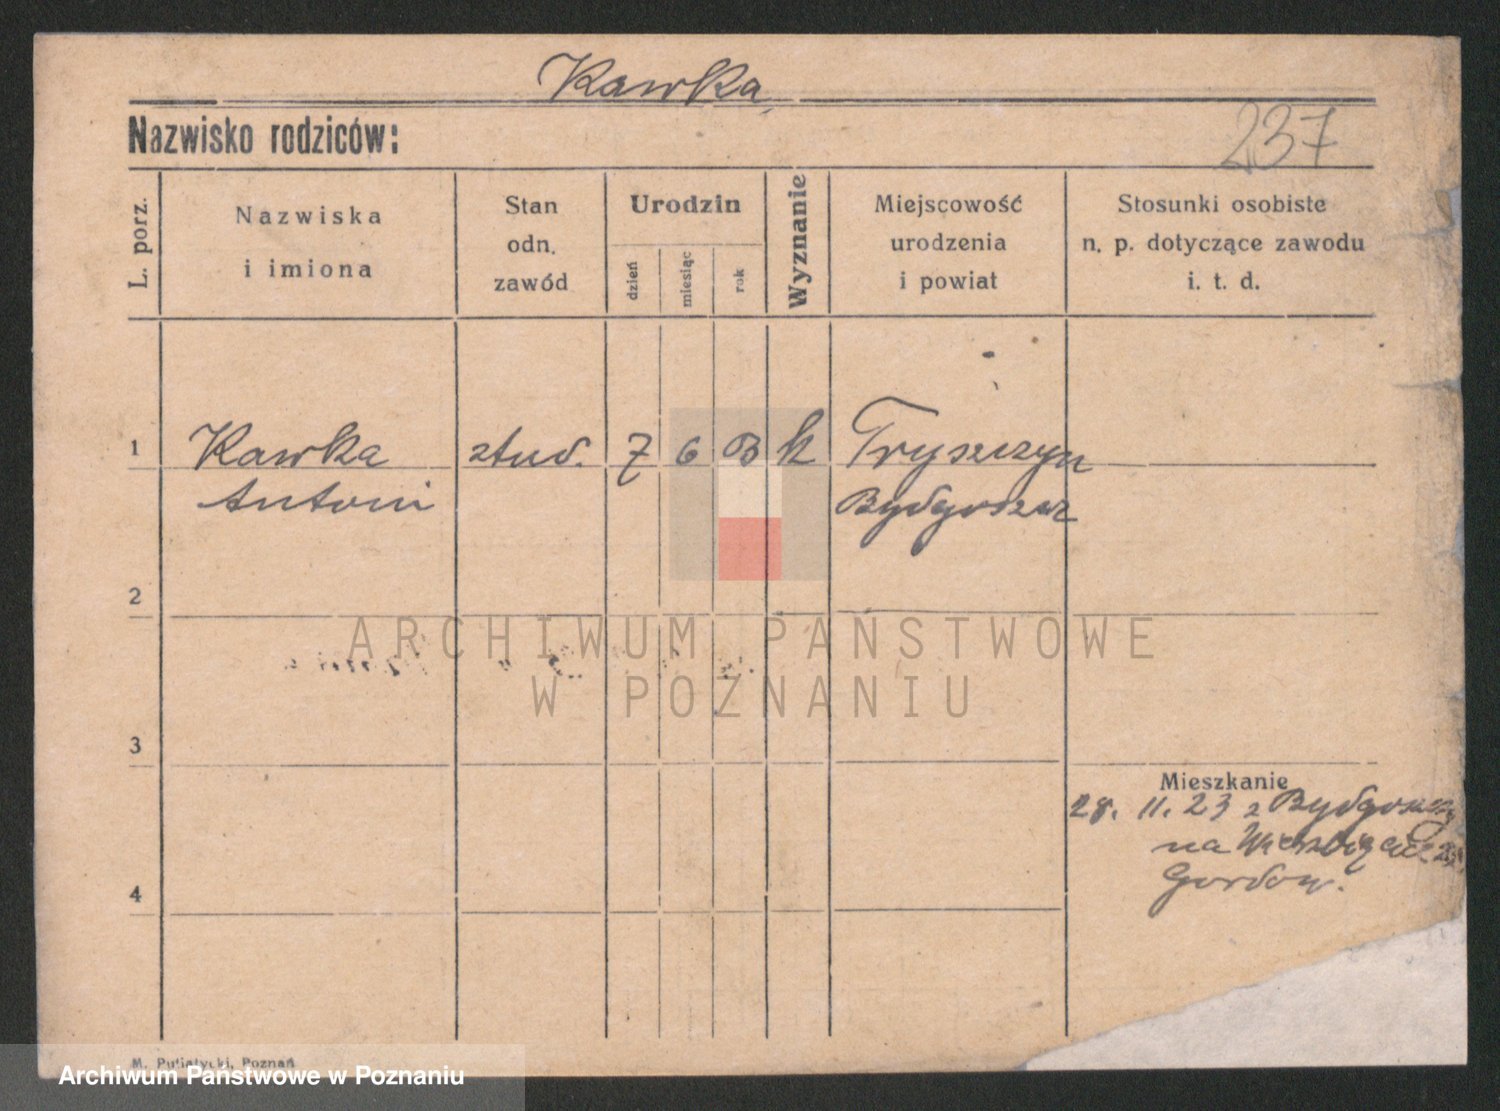 Kawka
237
Nazwisko rodziców:
L. porz.
Nazwiska
i imiona
Stan
odn.
zawód
Urodzin
dzień
miesiąc
rok
Wyznanie
Miejscowość
urodzenia
i powiat
Stosunki osobiste
n. p. dotyczące zawodu
i. t. d.
1 Kawka stud. 7 6 03 k Tryszczyn
Antoni Bydgoszcz
2
ARCHIWUM PAŃSTWOWE
W POZNANIU
3
Mieszkanie
28. 11. 23 z Bydgoszczy
na
4
M. Putiatycki, Poznań
Archiwum Państwowe w Poznaniu